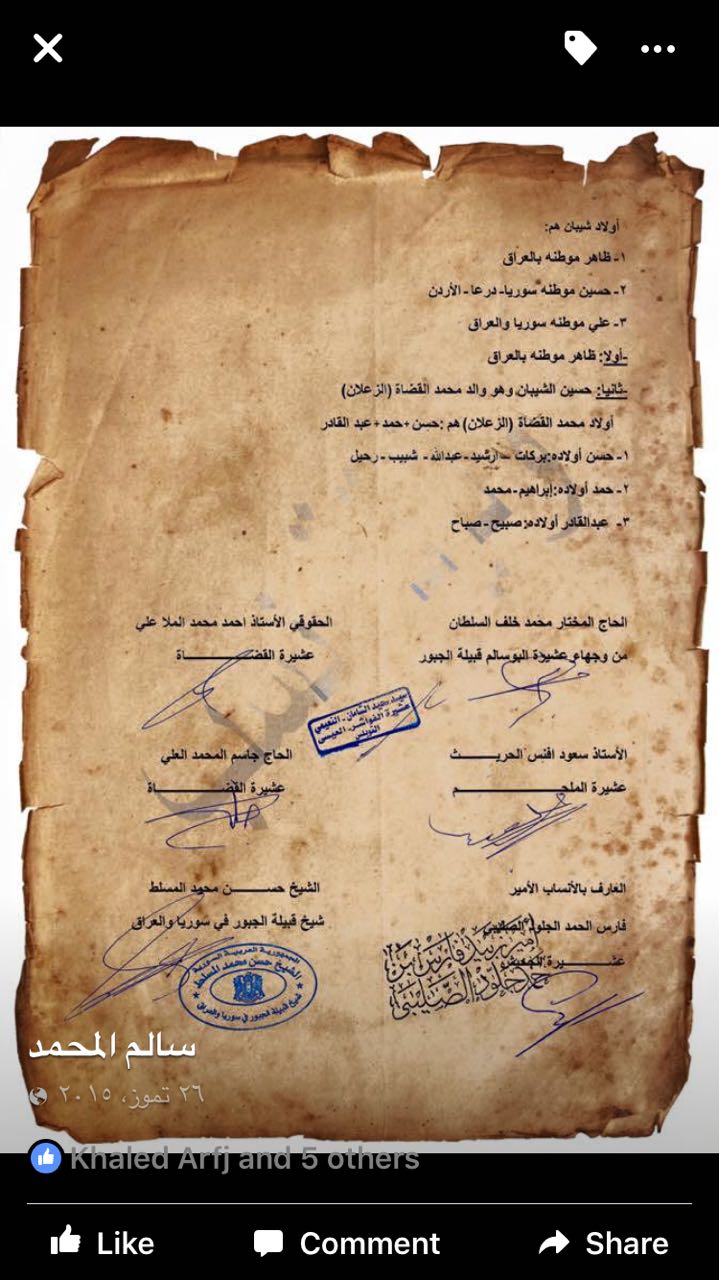 أولاد شيبان هم:
١- ظاهر موطنه بالعراق
٢- حسين موطنه سوريا-درعا-الأردن
٣- علي موطنه سوريا والعراق
-أولا: ظاهر موطنه بالعراق
-ثانيا: حسين الشيبان وهو والد محمد القضاة (الزعلان)
أولاد محمد القضاة (الزعلان) هم :حسن+حمد+عبد القادر
١- حسن أولاده:بركات – ارشيد-عبدالله- شبيب-رحيل
٢- حمد أولاده:إبراهيم-محمد
٣- عبدالقادر أولاده:صبيح-صباح
الحاج المختار محمد خلف السلطان
من وجهاء عشيرة البوسالم قبيلة الجبور
الحقوقي الأستاذ احمد محمد الملا علي
عشيرة القضاة
عشيرة الفواشر-العيسى
الأستاذ سعود افنس الحريث
عشيرة الملحم
الحاج جاسم المحمد العلي
عشيرة القضاة
العارف بالأنساب الأمير
فارس الحمد الجلود الصليبي
عشيرة
الشيخ حسن محيد المسلط
شيخ قبيلة الجبور في سوريا والعراق
الجمهورية العربية السورية
الشيخ حسن محمد المسلط
شيخ قبيلة الجبور في سوريا والعراق
سالم المحمد
٢٦ تموز، ٢٠١٥
Khaled Arfj and 5 others
Like Comment Share